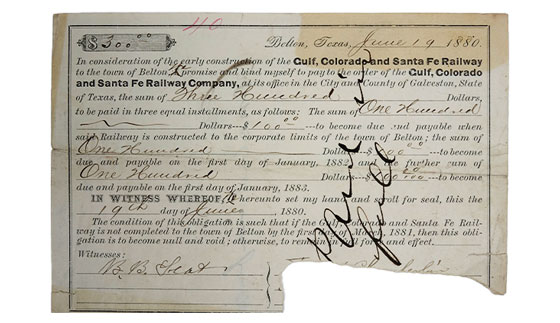 40
$300.00 Belton, Texas, June 19 1880.
In consideration of the early construction of the Gulf, Colorado and Santa Fe Railway
to the town of Belton I promise and bind myself to pay to the order of the Gulf, Colorado
and Santa Fe Railway Company, at its office in the City and County of Galveston, State
of Texas, the sum of Three Hundred Dollars,
to be paid in three equal installments, as follows: The sum of One Hundred
Dollars---$100.00---to become due and payable when
said Railway is constructed to the corporate limits of the town of Belton; the sum of
One Hundred Dollars---$100.00---to become
due and payable on the first day of January, 1882 and the further sum of
One Hundred Dollars---$100.00---to become
due and payable on the first day of January, 1883.
IN WITNESS WHEREOF, I hereunto set my hand and scroll for seal, this the
19th day of June 1880.
The condition of this obligation is such that if the Gulf, Colorado and Santa Fe Rail-
way is not completed to the town of Belton by the first day of March, 1881, then this obli-
gation is to become null and void; otherwise, to remain in full force and effect.
Witnesses:
B. B.
Paid in full